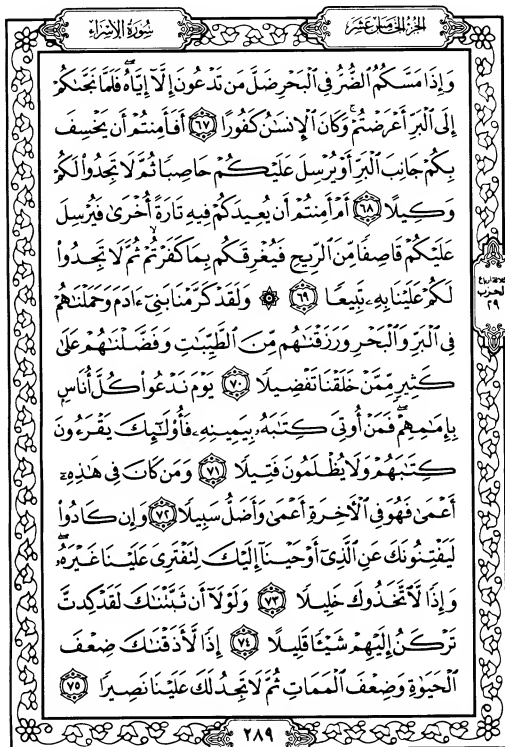 الجزء الخامس عشر
سورة الإسراء
وَإِذَا مَسَّكُمُ ٱلضُّرُّ فِى ٱلْبَحْرِ ضَلَّ مَن تَدْعُونَ إِلَّآ إِيَّاهُ ۖ فَلَمَّا نَجَّىٰكُمْ
إِلَى ٱلْبَرِّ أَعْرَضْتُمْ ۚ وَكَانَ ٱلْإِنسَـٰنُ كَفُورًا ٦٧ أَفَأَمِنتُمْ أَن يَخْسِفَ
بِكُمْ جَانِبَ ٱلْبَرِّ أَوْ يُرْسِلَ عَلَيْكُمْ حَاصِبًا ثُمَّ لَا تَجِدُوا۟ لَكُمْ
وَكِيلًا ٦٨ أَمْ أَمِنتُمْ أَن يُعِيدَكُمْ فِيهِ تَارَةً أُخْرَىٰ فَيُرْسِلَ
عَلَيْكُمْ قَاصِفًا مِّنَ ٱلرِّيحِ فَيُغْرِقَكُم بِمَا كَفَرْتُمْ ۙ ثُمَّ لَا تَجِدُوا۟
لَكُمْ عَلَيْنَا بِهِۦ تَبِيعًا ٦٩ ۞ وَلَقَدْ كَرَّمْنَا بَنِىٓ ءَادَمَ وَحَمَلْنَـٰهُمْ
فِى ٱلْبَرِّ وَٱلْبَحْرِ وَرَزَقْنَـٰهُم مِّنَ ٱلطَّيِّبَـٰتِ وَفَضَّلْنَـٰهُمْ عَلَىٰ
كَثِيرٍ مِّمَّنْ خَلَقْنَا تَفْضِيلًا ٧٠ يَوْمَ نَدْعُوا۟ كُلَّ أُنَاسٍۭ
بِإِمَـٰمِهِمْ ۖ فَمَنْ أُوتِىَ كِتَـٰبَهُۥ بِيَمِينِهِۦ فَأُو۟لَـٰٓئِكَ يَقْرَءُونَ
كِتَـٰبَهُمْ وَلَا يُظْلَمُونَ فَتِيلًا ٧١ وَمَن كَانَ فِى هَـٰذِهِۦٓ
أَعْمَىٰ فَهُوَ فِى ٱلْـَٔاخِرَةِ أَعْمَىٰ وَأَضَلُّ سَبِيلًا ٧٢ وَإِن كَادُوا۟
لَيَفْتِنُونَكَ عَنِ ٱلَّذِىٓ أَوْحَيْنَآ إِلَيْكَ لِتَفْتَرِىَ عَلَيْنَا غَيْرَهُۥ ۖ
وَإِذًا لَّٱتَّخَذُوكَ خَلِيلًا ٧٣ وَلَوْلَآ أَن ثَبَّتْنَـٰكَ لَقَدْ كِدتَّ
تَرْكَنُ إِلَيْهِمْ شَيْـًٔا قَلِيلًا ٧٤ إِذًا لَّأَذَقْنَـٰكَ ضِعْفَ
ٱلْحَيَوٰةِ وَضِعْفَ ٱلْمَمَاتِ ثُمَّ لَا تَجِدُ لَكَ عَلَيْنَا نَصِيرًا ٧٥
ثلاثة أرباع
الحزب
٢٩
٢٨٩